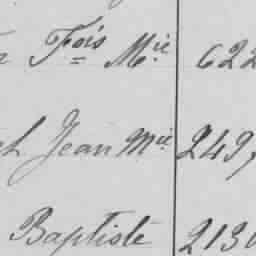 Fois Mie 622
Jean Mie 249,
Baptiste 2130